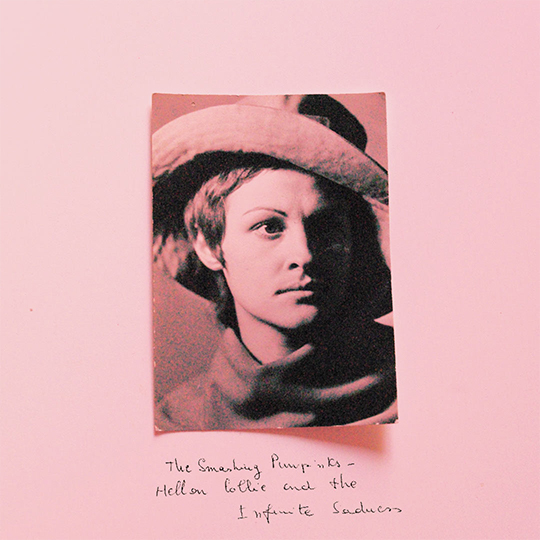 The Smashing Pumpinks -
Hellon Collie and the
Infinite Sadness